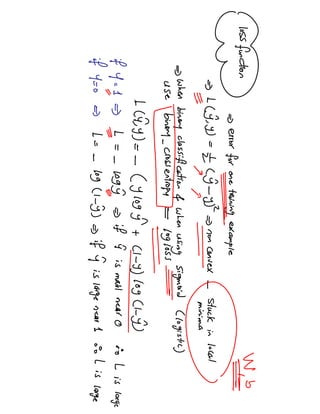 loss function
⇒ error for one training example
⇒ L(ŷ,y) = ½ (ŷ-y)² ⇒ non convex – stuck in local minima
W b
⇒ when binary classification & when using sigmoid (logistic)
use binary_crossentropy = log loss
L(ŷ,y) = - (y log ŷ + (1-y) log (1-ŷ))
if y=1 ⇒ L = - log ŷ ⇒ if ŷ is small near 0 ∴ L is large
if y=0 ⇒ L = - log (1-ŷ) ⇒ if ŷ is large near 1 ∴ L is large